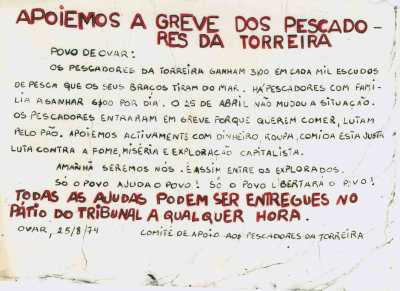 APOIEMOS A GREVE DOS PESCADO-
RES DA TORREIRA
POVO DE OVAR:
OS PESCADORES DA TORREIRA GANHAM 3$00 EM CADA MIL ESCUDOS
DE PESCA QUE OS SEUS BRAÇOS TIRAM DO MAR. HÁ PESCADORES COM FAMI-
LIA A GANHAR 6$00 POR DIA. O 25 DE ABRIL NÃO MUDOU A SITUAÇÃO.
OS PESCADORES ENTRARAM EM GREVE PORQUE QUEREM COMER, LUTAM
PELO PÃO. APOIEMOS ACTIVAMENTE COM DINHEIRO, ROUPA, COMIDA ESTA JUSTA
LUTA CONTRA A FOME, MISÉRIA E EXPLORAÇÃO CAPITALISTA.
AMANHÃ SEREMOS NÓS. É ASSIM ENTRE OS EXPLORADOS.
SÓ O POVO AJUDA O POVO! SÓ O POVO LIBERTARÁ O POVO!
TODAS AS AJUDAS PODEM SER ENTREGUES NO
PÁTIO DO TRIBUNAL A QUALQUER HORA.
OVAR, 25/8/74 COMITÉ DE APOIO AOS PESCADORES DA TORREIRA